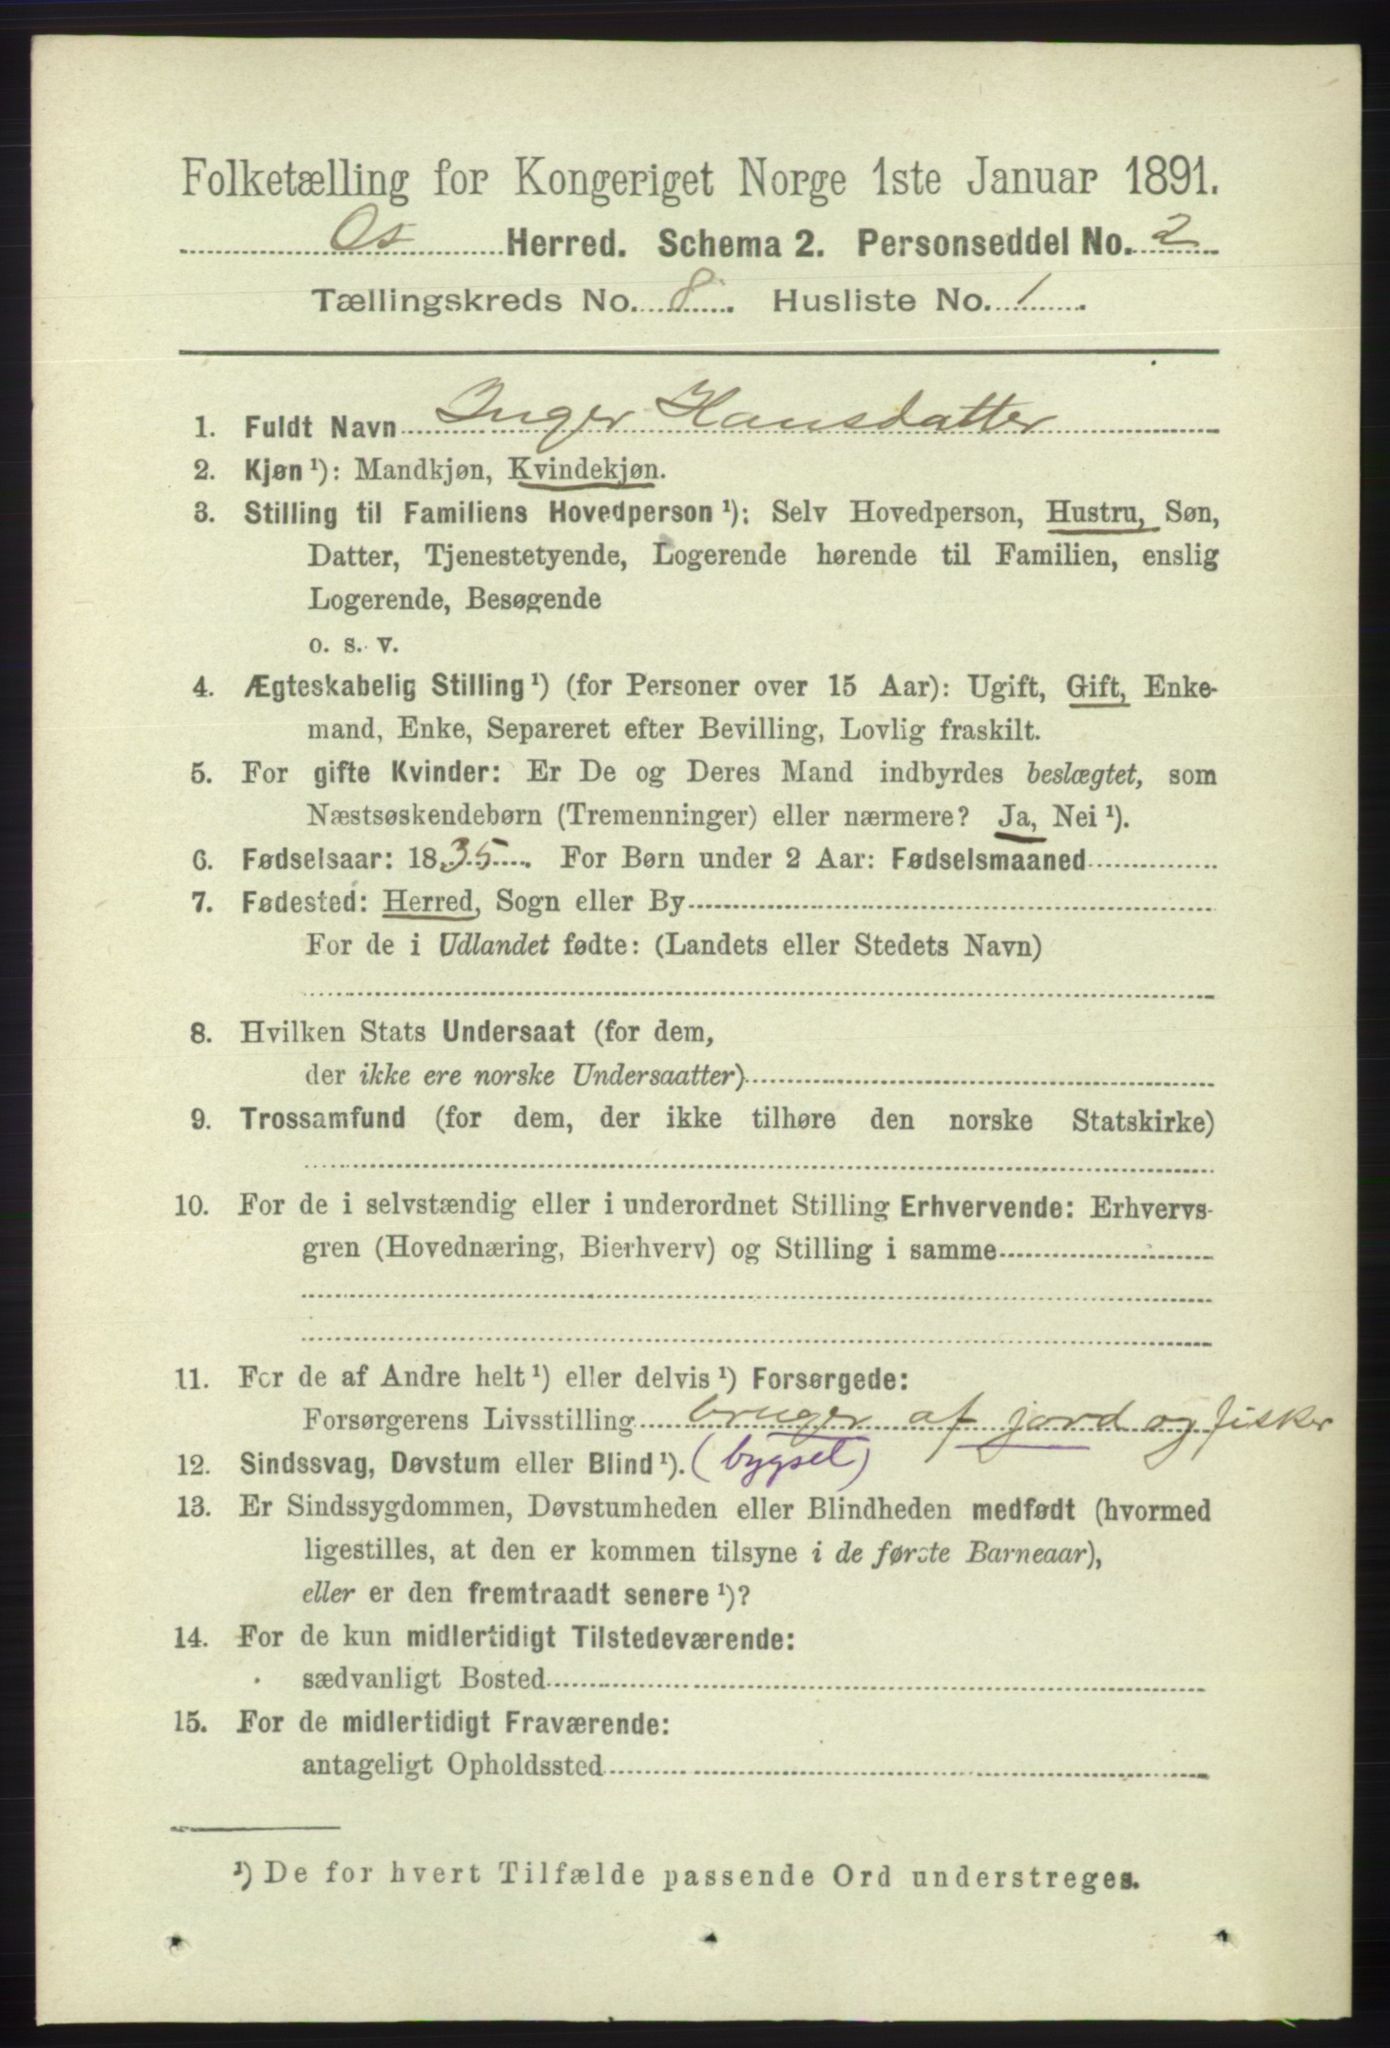 Folketælling for Kongeriget Norge 1ste Januar 1891.
Os Herred. Schema 2. Personseddel No. 2
Tællingskreds No. 8. Husliste No. 1.
1. Fuldt Navn Inger Hansdatter
2. Kjøn¹): Mandkjøn, Kvindekjøn.
3. Stilling til Familiens Hovedperson¹): Selv Hovedperson, Hustru, Søn,
Datter, Tjenestetyende, Logerende hørende til Familien, enslig
Logerende, Besøgende
o. s. v.
4. Ægteskabelig Stilling¹) (for Personer over 15 Aar): Ugift, Gift, Enke-
mand, Enke, Separeret efter Bevilling, Lovlig fraskilt.
5. For gifte Kvinder: Er De og Deres Mand indbyrdes beslægtet, som
Næstsøskendebørn (Tremenninger) eller nærmere? Ja, Nei¹).
6. Fødselsaar: 1835. For Børn under 2 Aar: Fødselsmaaned
7. Fødested: Herred, Sogn eller By
For de i Udlandet fødte: (Landets eller Stedets Navn)
8. Hvilken Stats Undersaat (for dem,
der ikke ere norske Undersaatter)
9. Trossamfund (for dem, der ikke tilhøre den norske Statskirke)
10. For de i selvstændig eller i underordnet Stilling Erhvervende: Erhvervs-
gren (Hovednæring, Bierhverv) og Stilling i samme
11. For de af Andre helt¹) eller delvis¹) Forsørgede:
Forsørgerens Livsstilling bruger af jord og fisker
12. Sindssvag, Døvstum eller Blind¹). (bygsel)
13. Er Sindssygdommen, Døvstumheden eller Blindheden medfødt (hvormed
ligestilles, at den er kommen tilsyne i de første Barneaar),
eller er den fremtraadt senere¹)?
14. For de kun midlertidigt Tilstedeværende:
sædvanligt Bosted
15. For de midlertidigt Fraværende:
antageligt Opholdssted
¹) De for hvert Tilfælde passende Ord understreges.